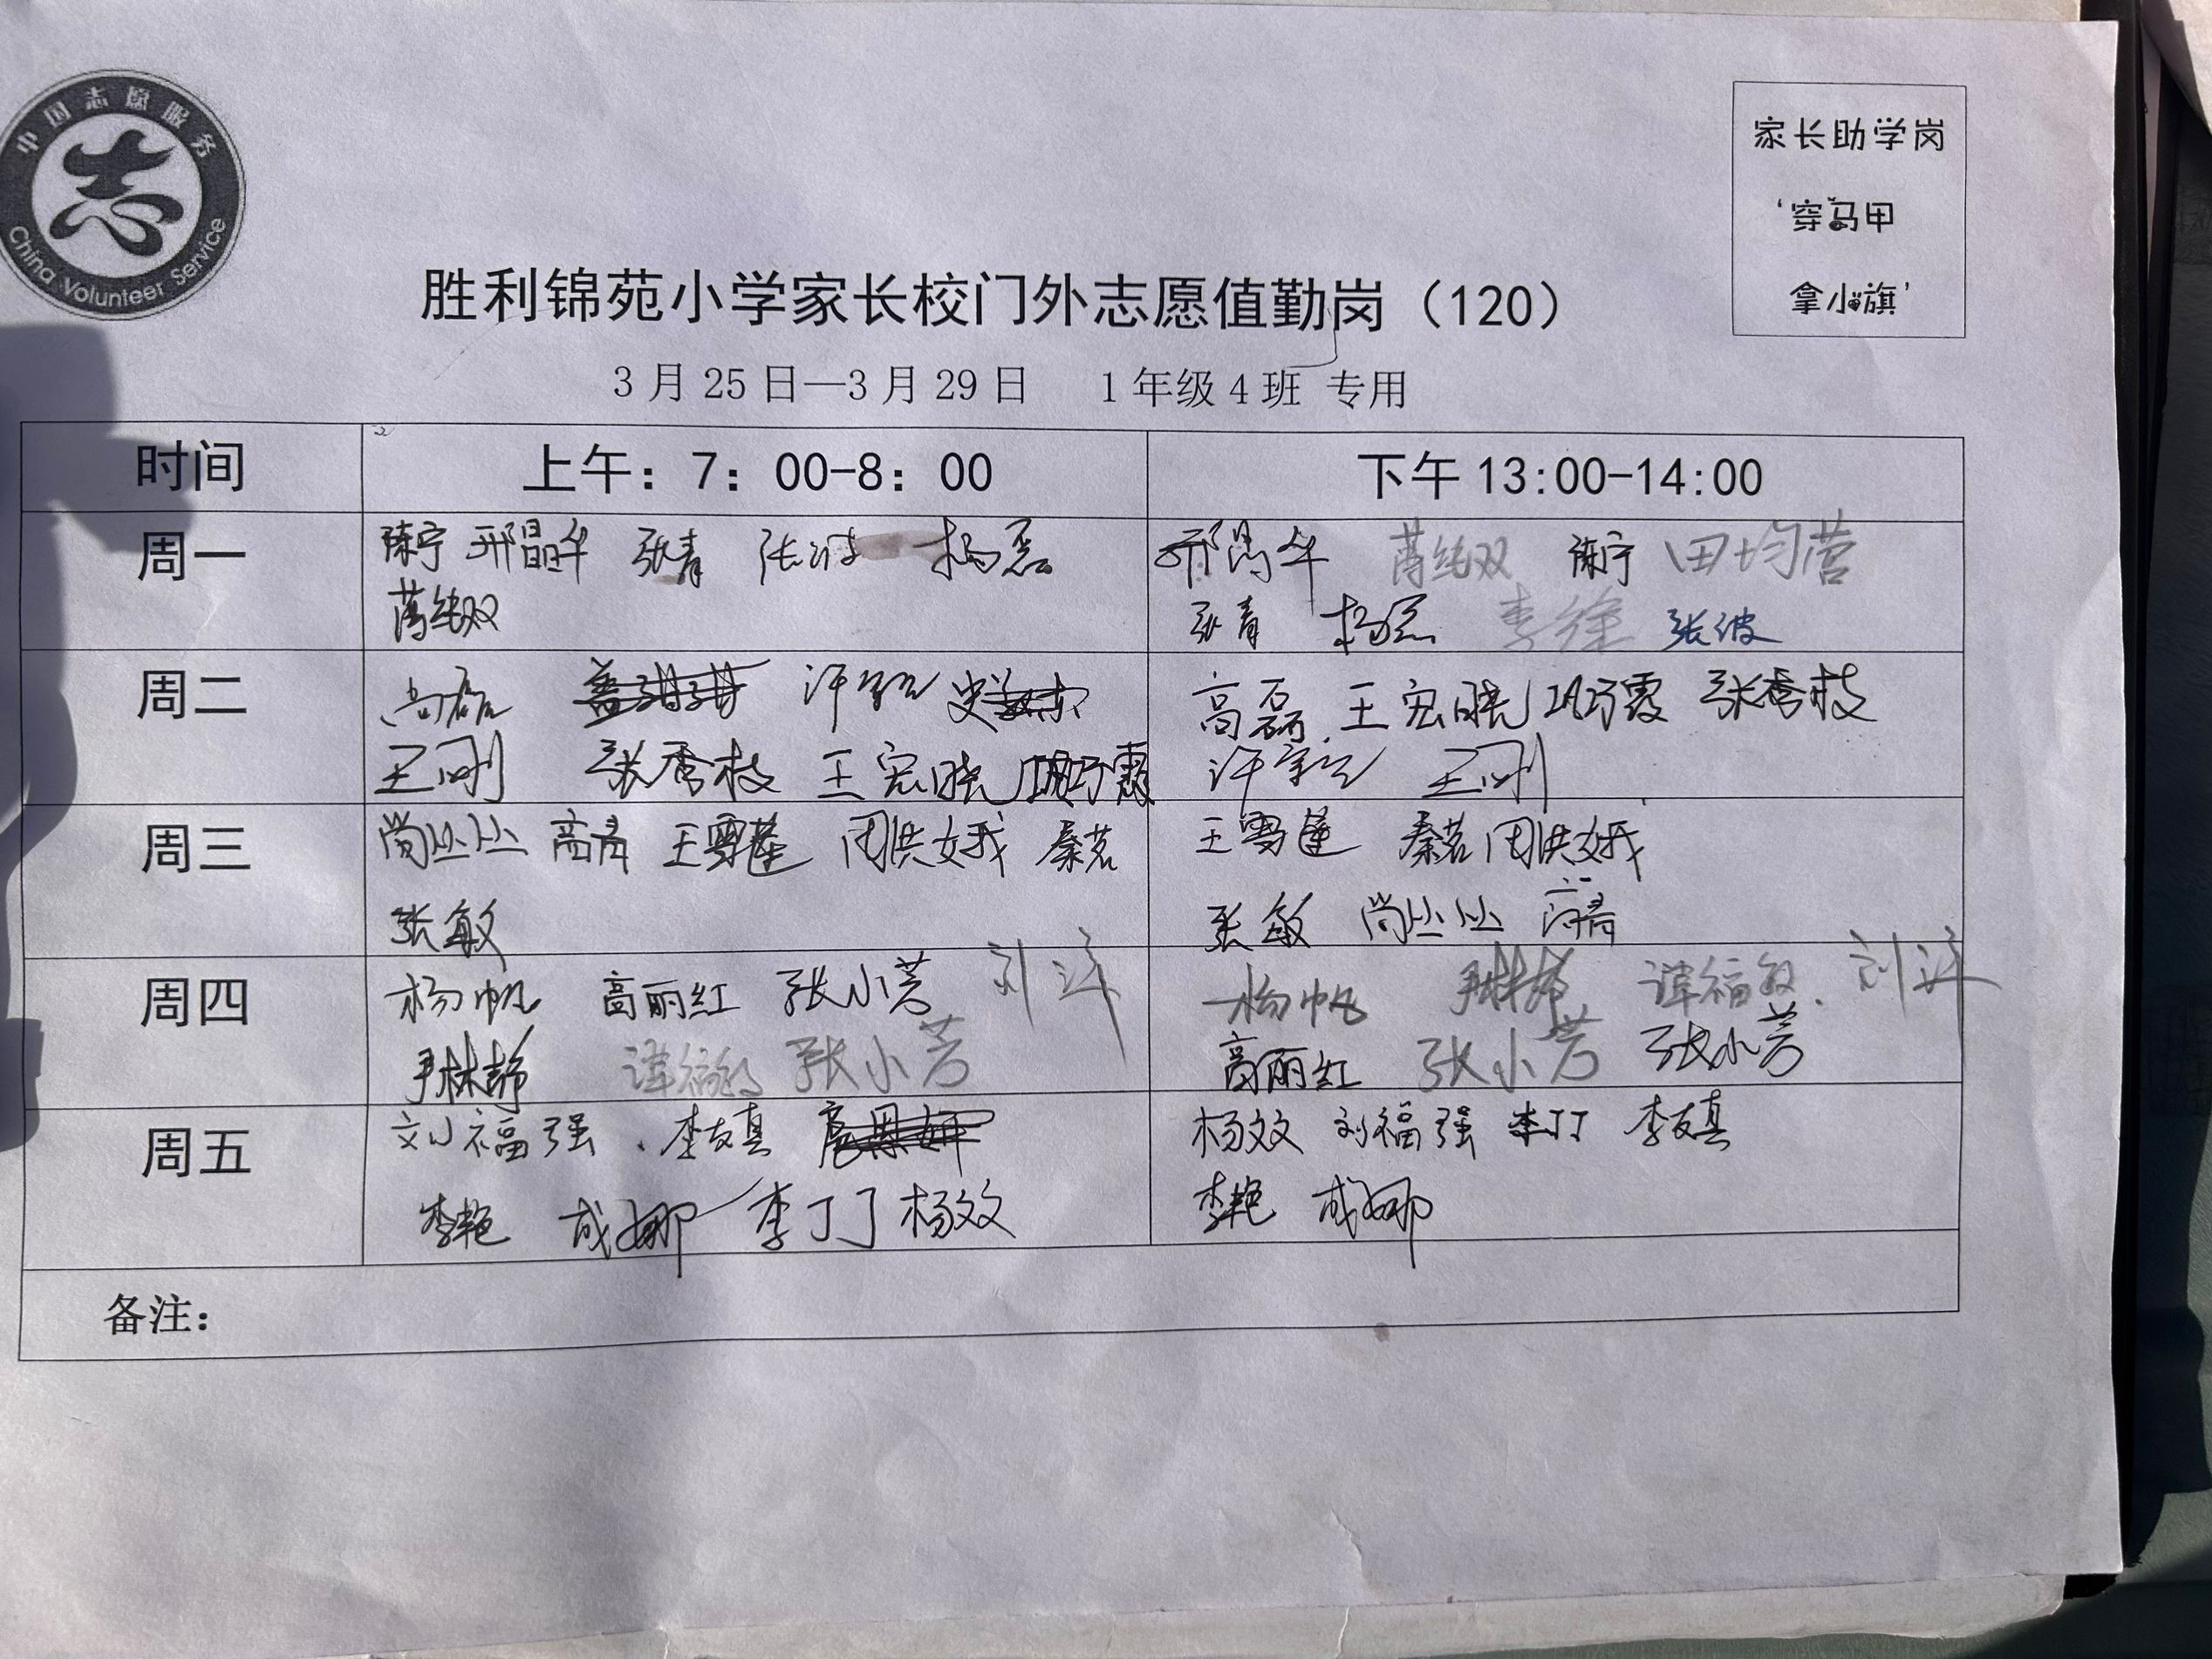 中国志愿服务
志
China Volunteer Service
家长助学岗
‘穿马甲
拿小旗’
胜利锦苑小学家长校门外志愿值勤岗（120）
3月25日—3月29日 1年级4班 专用
时间 上午：7：00-8：00 下午13:00-14:00
周一 陈宁 邢晶华 张青 张波 杨磊 邢晶华 蒋纯双 陈宁 田均营
蒋纯双 张青 杨磊 李徐 张波
周二 高磊 高磊 王宏晓 巩巧霞 张秀枝
王刚 张秀枝 王宏晓 巩巧霞 王刚
周三 尚丛丛 高青 王雪莲 周洪娥 秦茗 王雪莲 秦茗 周洪娥
张敏 张敏 尚丛丛 高青
周四 杨帆 高丽红 张小芳 杨帆 谭福敏
尹林静 谭福敏 张小芳 高丽红 张小芳 张小芳
周五 刘福强 李友真 杨效 刘福强 李丁丁 李友真
李艳 成娜 李丁丁 杨效 李艳 成娜
备注：